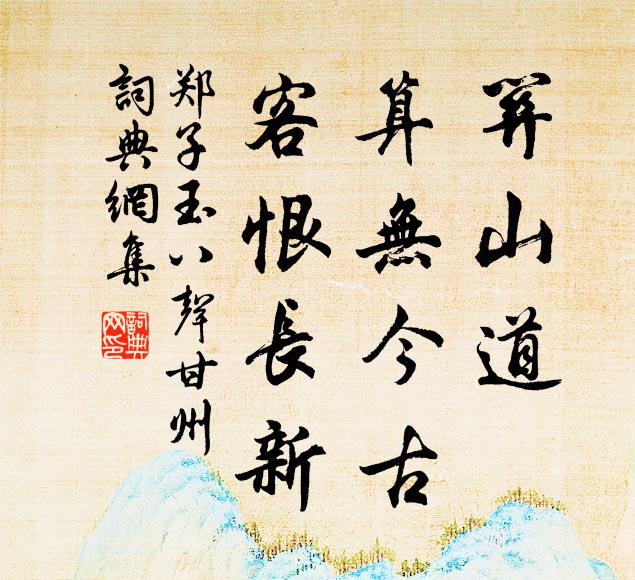 關山道
算無今古
客恨長新
郑子玉八聲甘州
詞典網集
詞典
网印